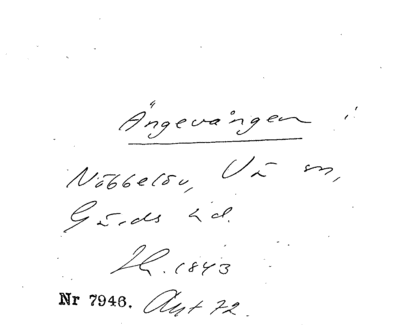 Ängevången i
Nöbbelöv, Vä sn,
Gärds hd.
1843
Nr 7946. Akt 72.